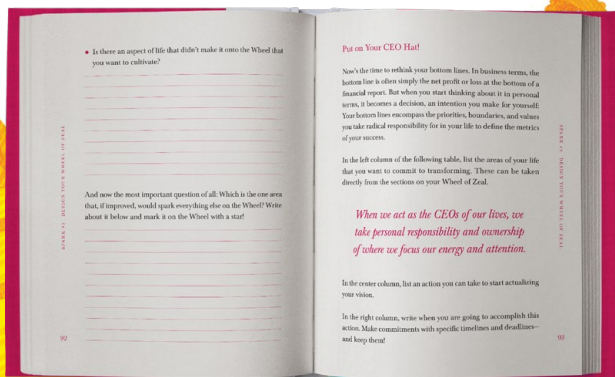 ◆ Is there an aspect of life that didn't make it onto the Wheel that
you want to cultivate?
And now the most important question of all: Which is the one area
that, if improved, would spark everything else on the Wheel? Write
about it below and mark it on the Wheel with a star!
DESIGN YOUR WHEEL OF ZEAL
92
Put on Your CEO Hat!
Now's the time to rethink your bottom lines. In business terms, the
bottom line is often simply the net profit or loss at the bottom of a
financial report. But when you start thinking about it in personal
terms, it becomes a decision, an intention you make for yourself:
Your bottom lines encompass the priorities, boundaries, and values
you take radical responsibility for in your life to define the metrics
of your success.
In the left column of the following table, list the areas of your life
that you want to commit to transforming. These can be taken
directly from the sections on your Wheel of Zeal.
When we act as the CEOs of our lives, we
take personal responsibility and ownership
of where we focus our energy and attention.
In the center column, list an action you can take to start actualizing
your vision.
In the right column, write when you are going to accomplish this
action. Make commitments with specific timelines and deadlines—
and keep them!
DESIGN YOUR WHEEL OF ZEAL
93